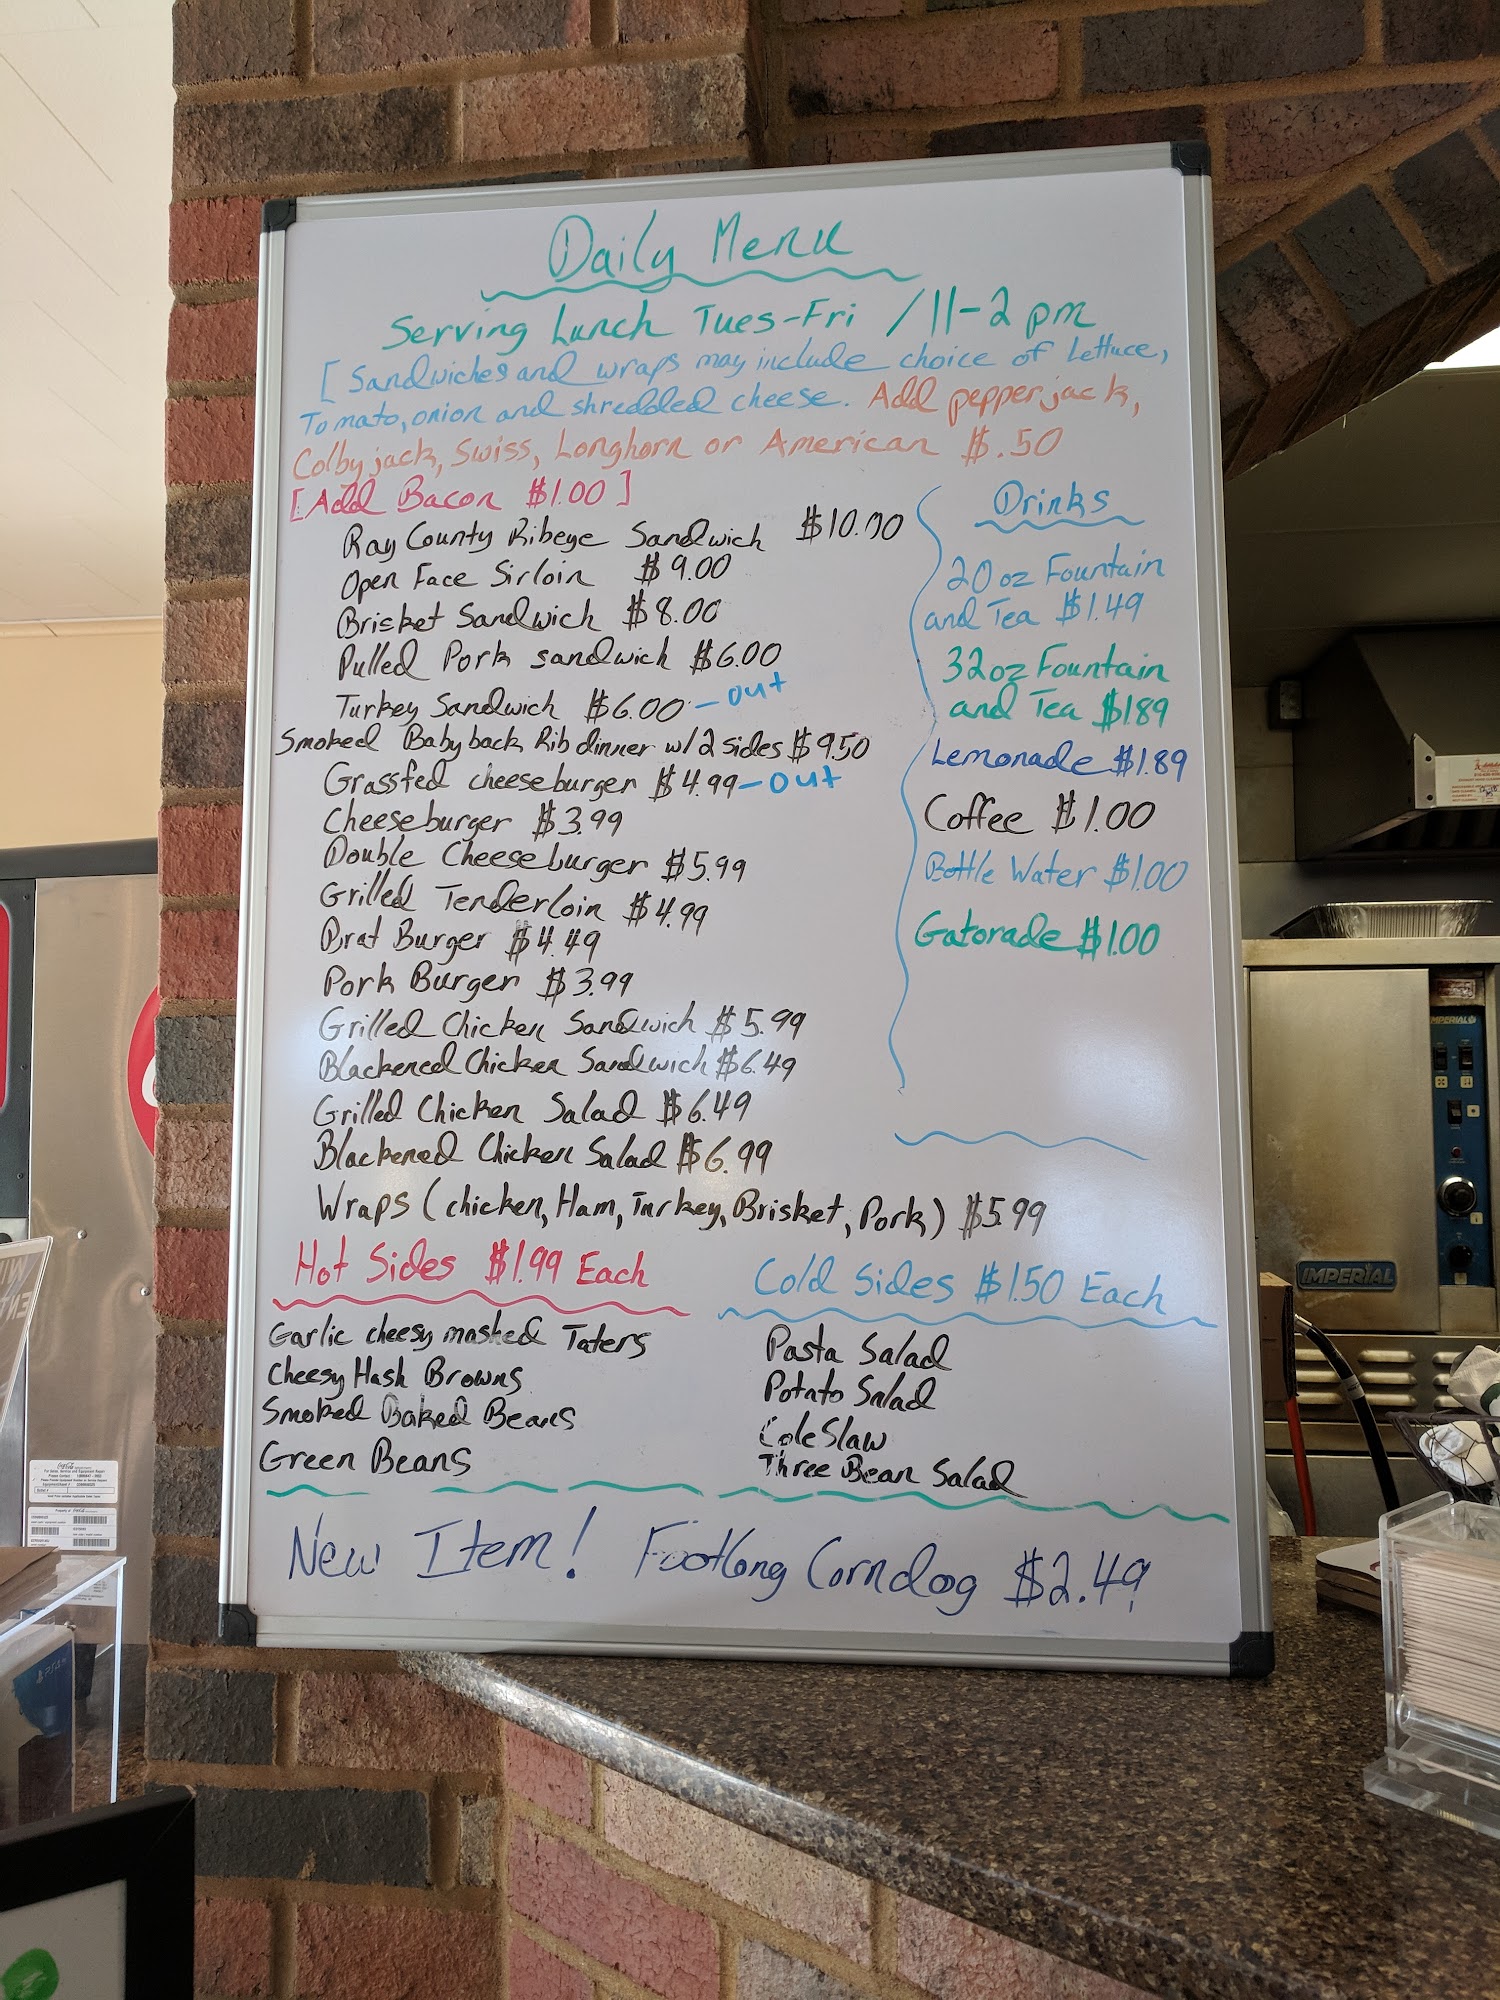 Daily Menu
Serving Lunch Tues-Fri / 11-2pm
[Sandwiches and wraps may include choice of Lettuce,
Tomato, onion and shredded cheese. Add pepperjack,
Colbyjack, Swiss, Longhorn or American $.50
[Add Bacon $1.00]
Ray County Ribeye Sandwich $10.00
Open Face Sirloin $9.00
Brisket Sandwich $8.00
Pulled Pork sandwich $6.00
Turkey Sandwich $6.00 - out
Smoked Babyback Rib dinner w/2 sides $9.50
Grassfed cheeseburger $4.99 - out
Cheeseburger $3.99
Double Cheeseburger $5.99
Grilled Tenderloin $4.99
Brat Burger $4.49
Pork Burger $3.99
Grilled Chicken Sandwich $5.99
Blackened Chicken Sandwich $6.49
Grilled Chicken Salad $6.49
Blackened Chicken Salad $6.99
Wraps (chicken, Ham, Turkey, Brisket, Pork) $5.99
Drinks
20 oz Fountain
and Tea $1.49
32oz Fountain
and Tea $1.89
Lemonade $1.89
Coffee $1.00
Bottle Water $1.00
Gatorade $1.00
Hot Sides $1.99 Each
Garlic cheesy mashed Taters
Cheesy Hash Browns
Smoked Baked Beans
Green Beans
Cold Sides $1.50 Each
Pasta Salad
Potato Salad
Cole Slaw
Three Bean Salad
New Item! Footlong Corndog $2.49
IMPERIAL
IMPERIAL